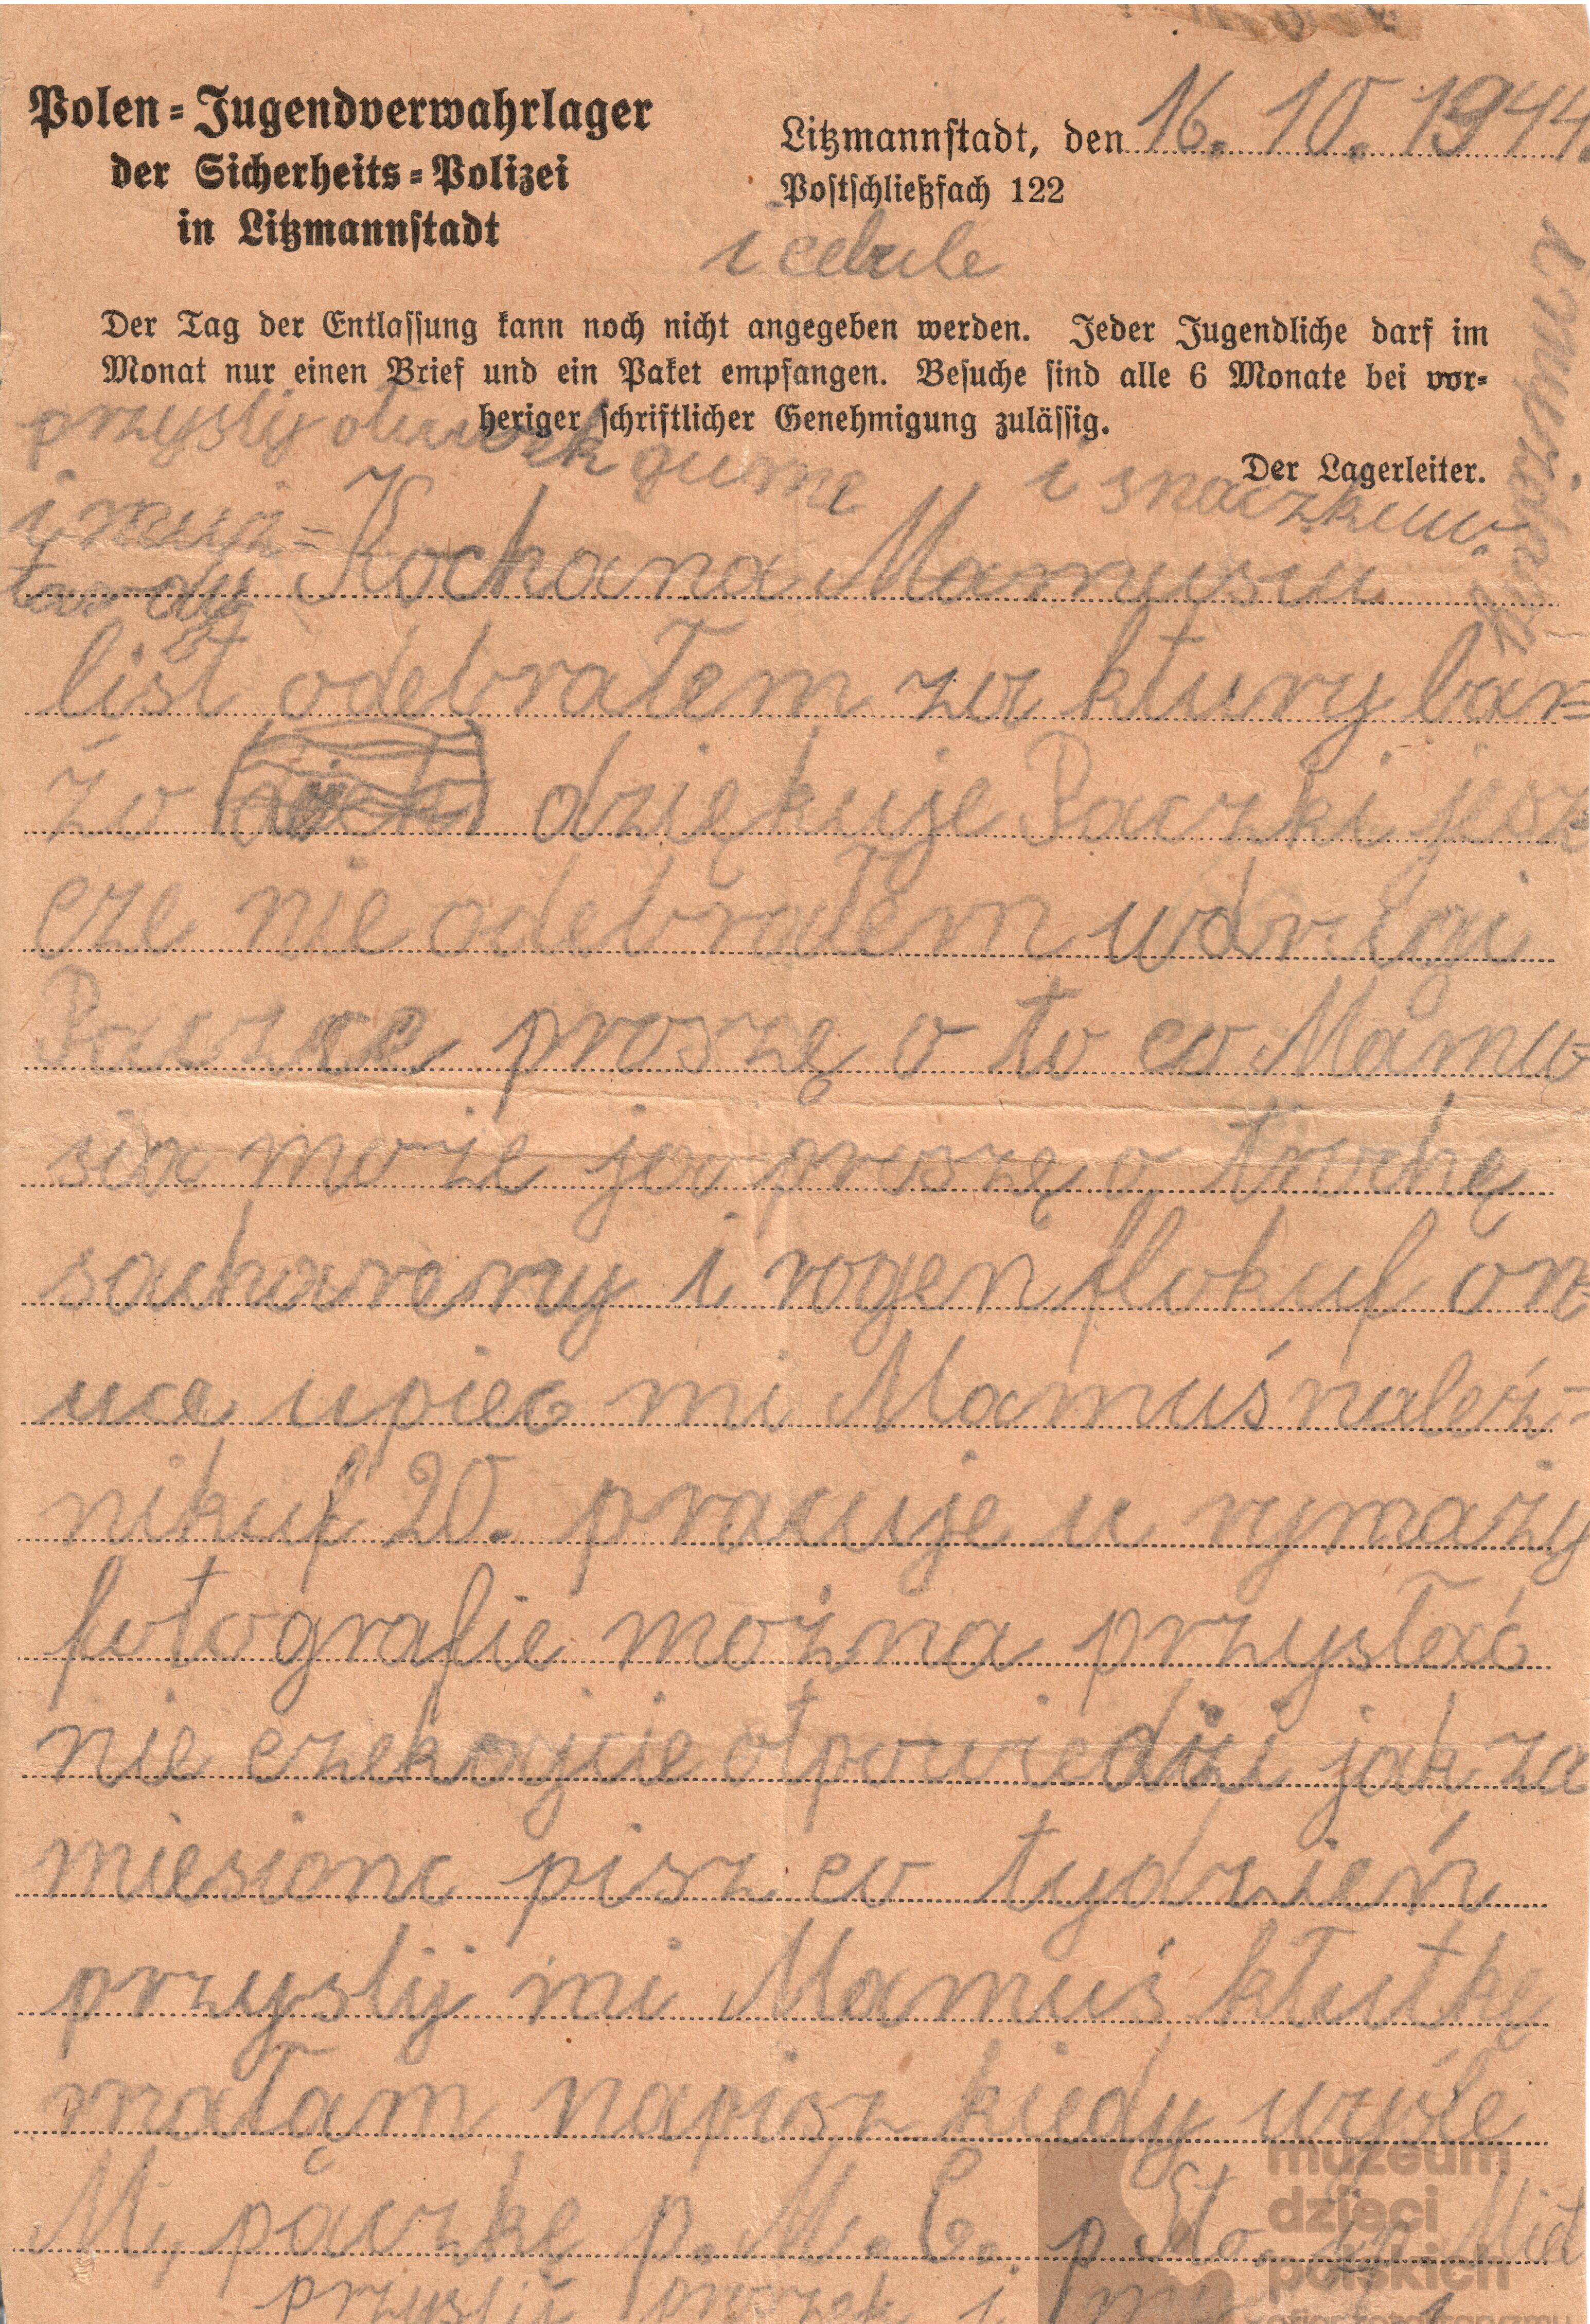 Polen-Jugendverwahrlager
der Sicherheits-Polizei
in Litzmannstadt
Litzmannstadt, den 16. 10. 1944.
Postschließfach 122
i cebule
Der Tag der Entlassung kann noch nicht angegeben werden. Jeder Jugendliche darf im
Monat nur einen Brief und ein Paket empfangen. Besuche sind alle 6 Monate bei vor-
heriger schriftlicher Genehmigung zulässig.
Der Lagerleiter.
przyslij ołuwek gume
i
Kochana Mamusiu
list odebrałem za ktury bar=
zo dziękuje Paczki jesz
cze nie odebrałem w drugi
Paczce proszę o to co Mamu=
sia może ja proszę o trochę
sacharyny i rogen flokuf
upiec mi Mamuś naleś-
nikuf 20. pracuje u rymazy
fotografie można przysłać
nie czekajcie otpowiedzi jak za
miesionc pisz co tydzień
przyslij mi Mamuś kłutkę
małąm napisz kiedy wyśle
M, paczkę p. M. C. p
przyslij i
muzeum
dzieci
polskich